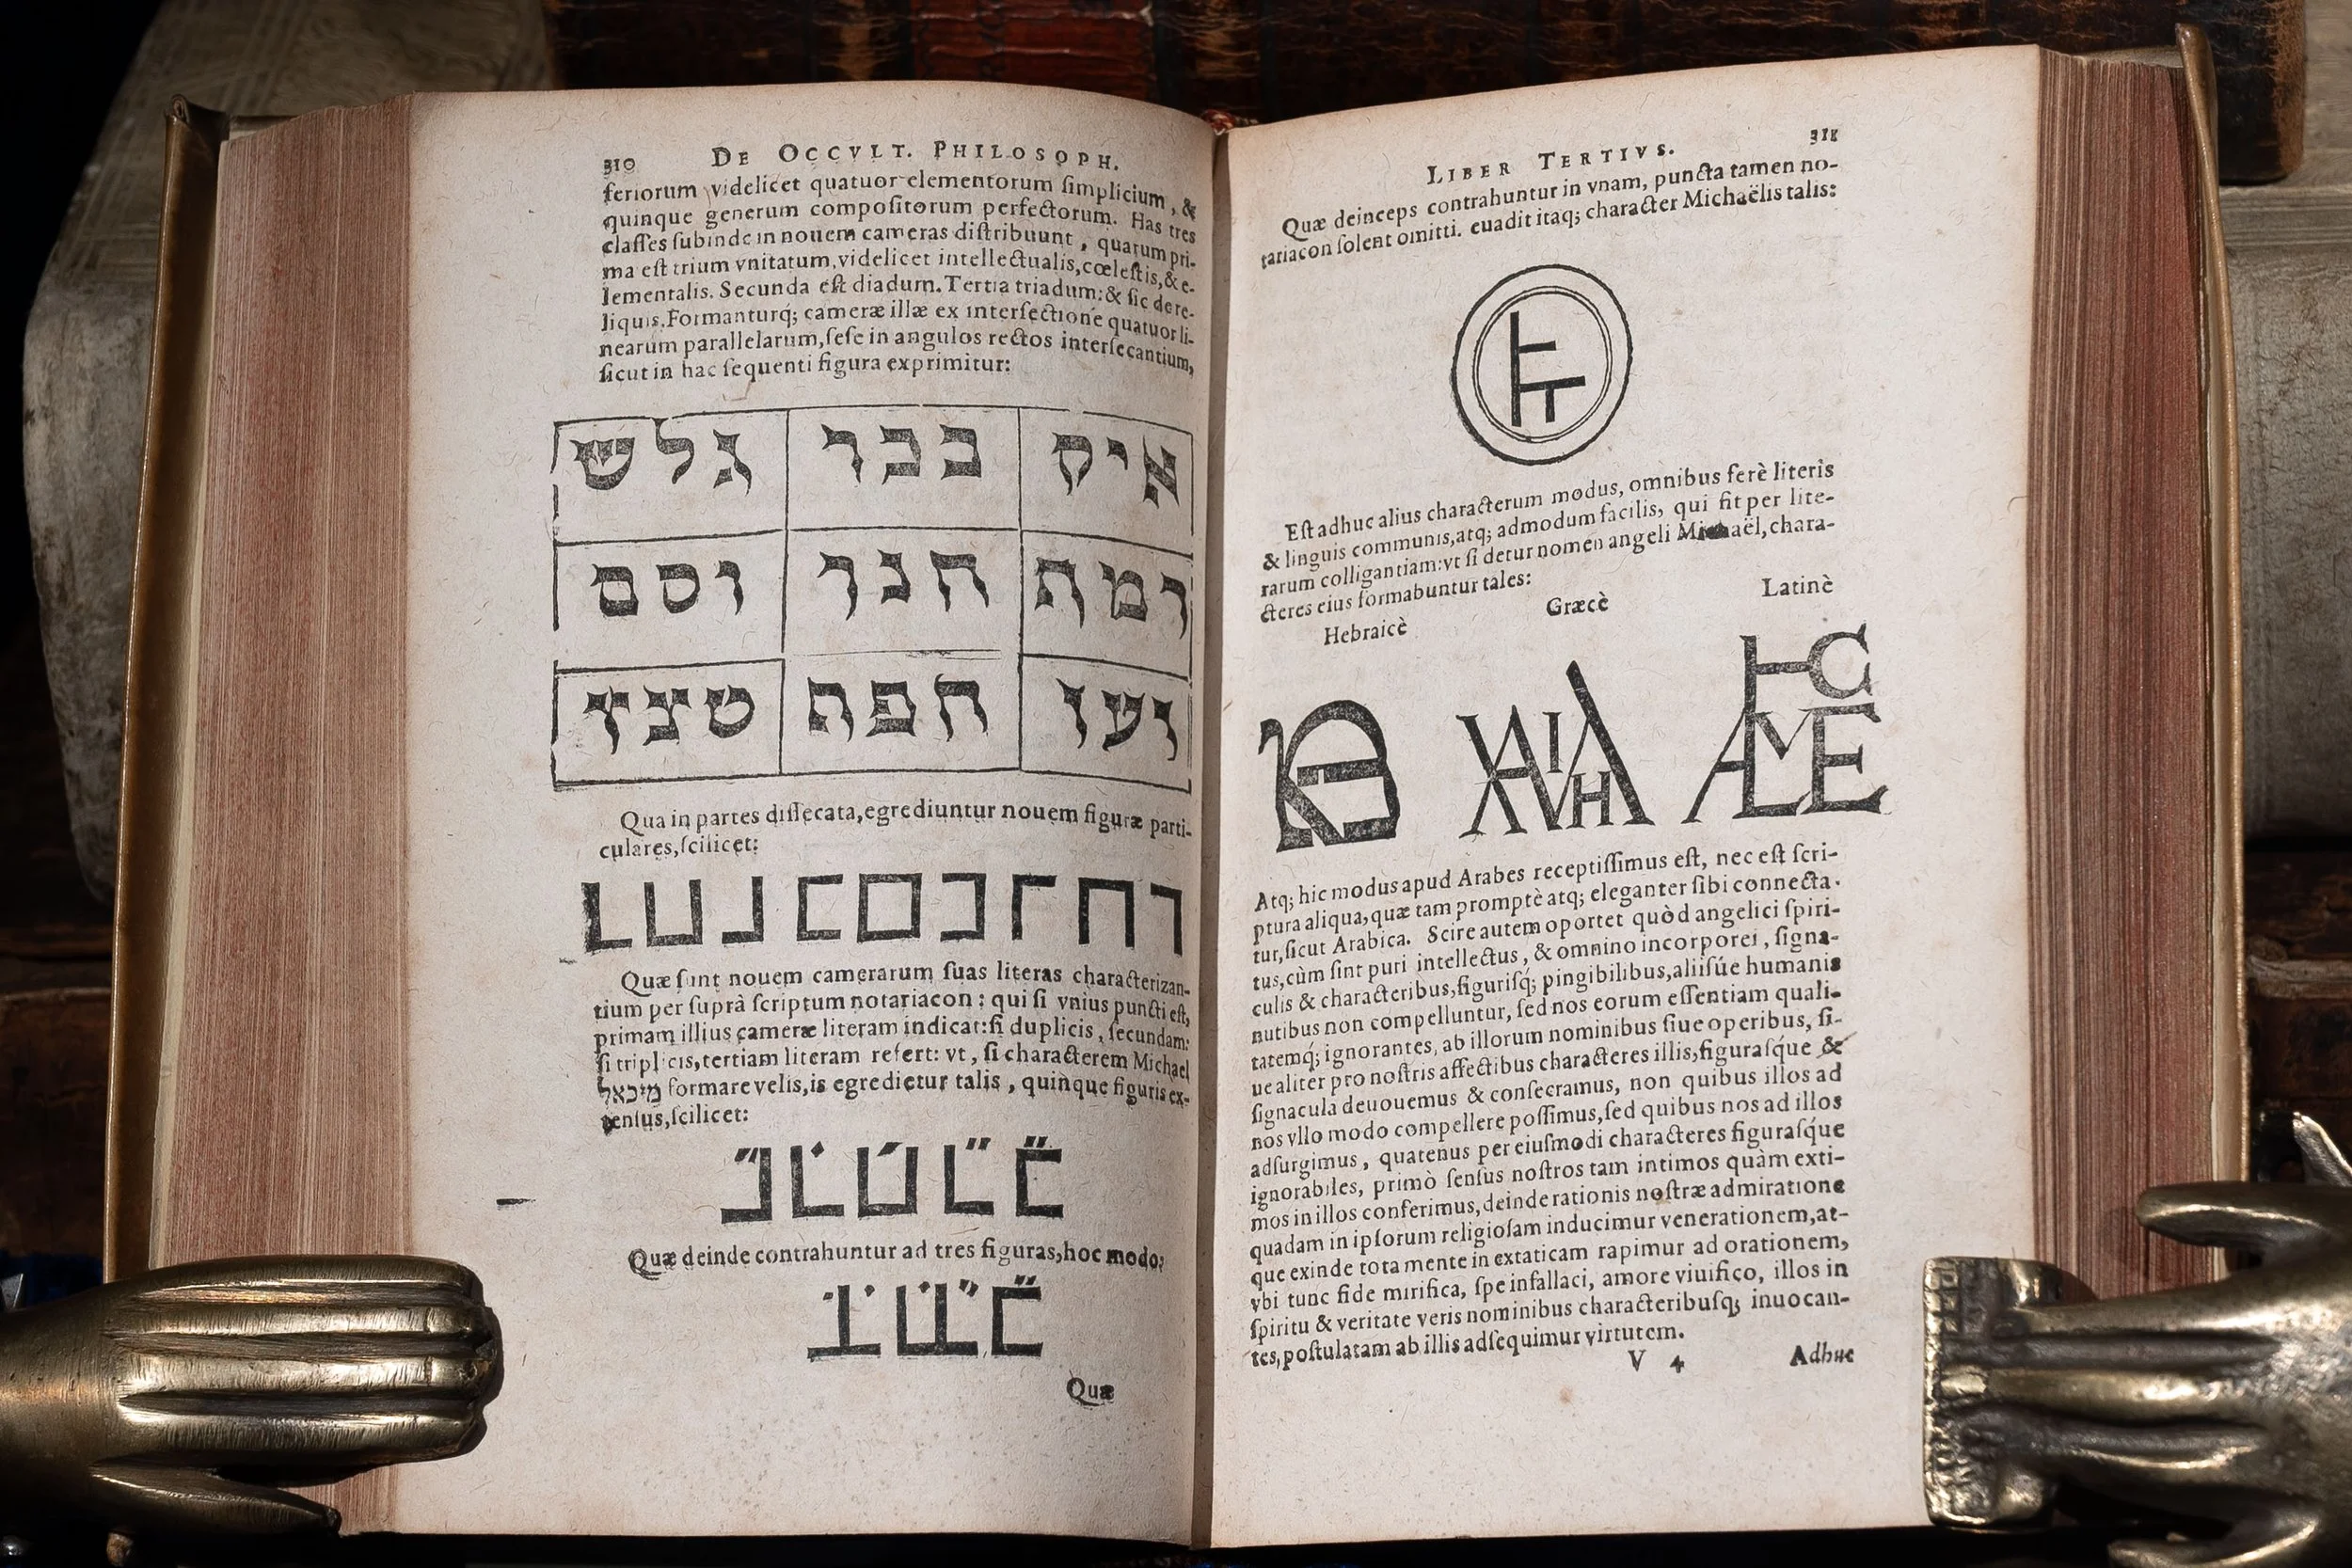 310 DE OCCVLT. PHILOSOPH.
feriorum videlicet quatuor elementorum ſimplicium, &
quinque generum compoſitorum perfectorum. Has tres
claſſes ſubinde in nouem cameras diſtribuunt, quarum pri-
ma eſt trium vnitatum, videlicet intellectualis, cœleſtis, & e-
lementalis. Secunda eſt diadum. Tertia triadum: & ſic de re-
liquis. Formanturq́; cameræ illæ ex interſectione quatuor li-
nearum parallelarum, ſeſe in angulos rectos interſecantium,
ſicut in hac ſequenti figura exprimitur:
איק בכר גלש
Qua in partes diſſecata, egrediuntur nouem figuræ parti-
culares, ſcilicet:
Quæ ſunt nouem camerarum ſuas literas characterizan-
tium per ſuprà ſcriptum notariacon: qui ſi vnius puncti eſt,
primam illius cameræ literam indicat: ſi duplicis, ſecundam:
ſi triplicis, tertiam literam refert: vt, ſi characterem Michael
מיכאל formare velis, is egredietur talis, quinque figuris ex-
tenſus, ſcilicet:
Quæ deinde contrahuntur ad tres figuras, hoc modo:
Quæ
LIBER TERTIVS. 311
Quæ deinceps contrahuntur in vnam, puncta tamen no-
tariacon ſolent omitti. euadit itaq; character Michaëlis talis:
Eſt adhuc alius characterum modus, omnibus ferè literis
& linguis communis, atq; admodum facilis, qui fit per lite-
rarum colligantiam: vt ſi detur nomen angeli Michaël, chara-
cteres eius formabuntur tales:
Hebraicè Græcè Latinè
Atq; hic modus apud Arabes receptiſſimus eſt, nec eſt ſcri-
ptura aliqua, quæ tam promptè atq; eleganter ſibi connecta-
tur, ſicut Arabica. Scire autem oportet quòd angelici ſpiri-
tus, cùm ſint puri intellectus, & omnino incorporei, ſigna-
culis & characteribus, figuriſq́; pingibilibus, aliiſúe humanis
nutibus non compelluntur, ſed nos eorum eſſentiam quali-
tatemq́; ignorantes, ab illorum nominibus ſiue operibus, ſi-
ue aliter pro noſtris affectibus characteres illis, figuraſq́ue &
ſignacula deuouemus & conſecramus, non quibus illos ad
nos vllo modo compellere poſſimus, ſed quibus nos ad illos
adſurgimus, quatenus per eiuſmodi characteres figuraſq́ue
ignorabiles, primò ſenſus noſtros tam intimos quàm exti-
mos in illos conferimus, deinde rationis noſtræ admiratione
quadam in ipſorum religioſam inducimur venerationem, at-
que exinde tota mente in extaticam rapimur ad orationem,
vbi tunc fide mirifica, ſpe infallaci, amore viuifico, illos in
ſpiritu & veritate veris nominibus characteribuſq́; inuocan-
tes, poſtulatam ab illis adſequimur virtutem.
V 4 Adhuc